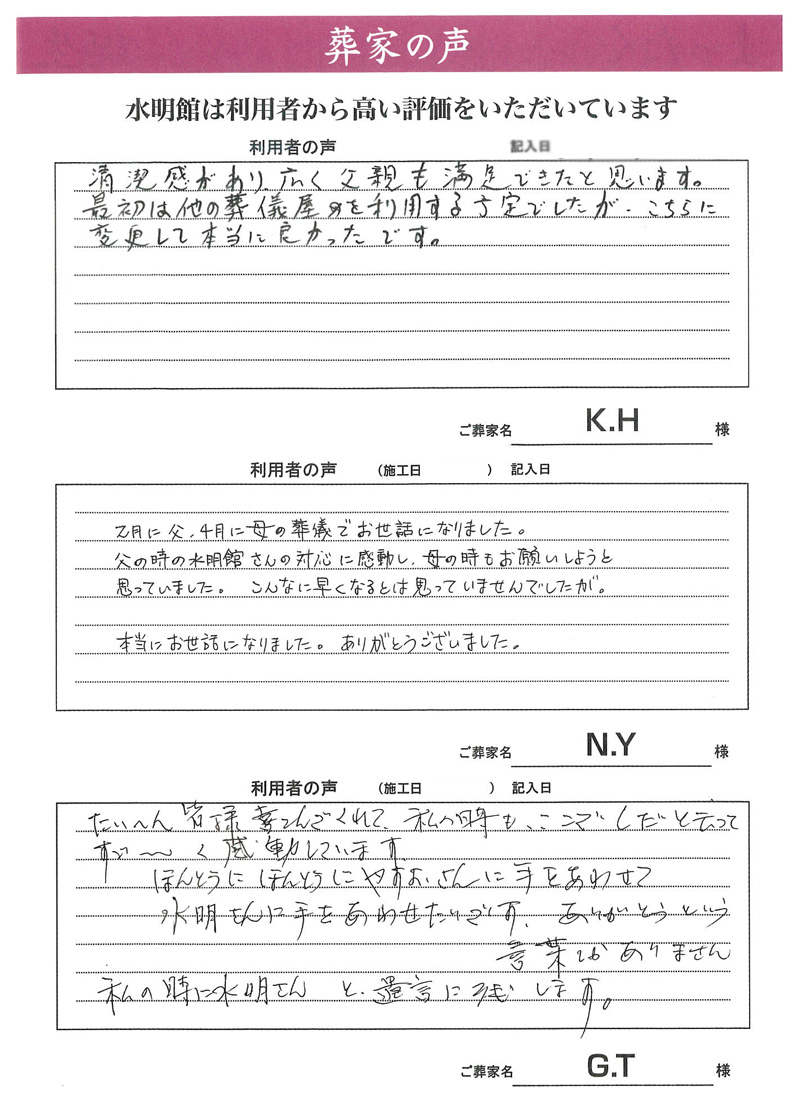 葬家の声
水明館は利用者から高い評価をいただいています
利用者の声 記入日
清潔感があり、広く父親も満足できたと思います。
最初は他の葬儀屋を利用する予定でしたが、こちらに
変更して本当に良かったです。
ご葬家名 K.H 様
利用者の声 (施工日 ) 記入日
2月に父、4月に母の葬儀でお世話になりました。
父の時の水明館さんの対応に感動し、母の時もお願いしようと
思っていました。 こんなに早くなるとは思っていませんでしたが。
本当にお世話になりました。ありがとうございました。
ご葬家名 N.Y 様
利用者の声 (施工日 ) 記入日
たいへん皆様喜こんでくれて、私の時も、ここでしだと云って
すご〜く感動しています
ほんとうにほんとうにやすおさんに手をあわせて
水明さんに手をあわせたいです、ありがとうという
言葉しかありません
私の時に水明さんと、遺言にします。
ご葬家名 G.T 様